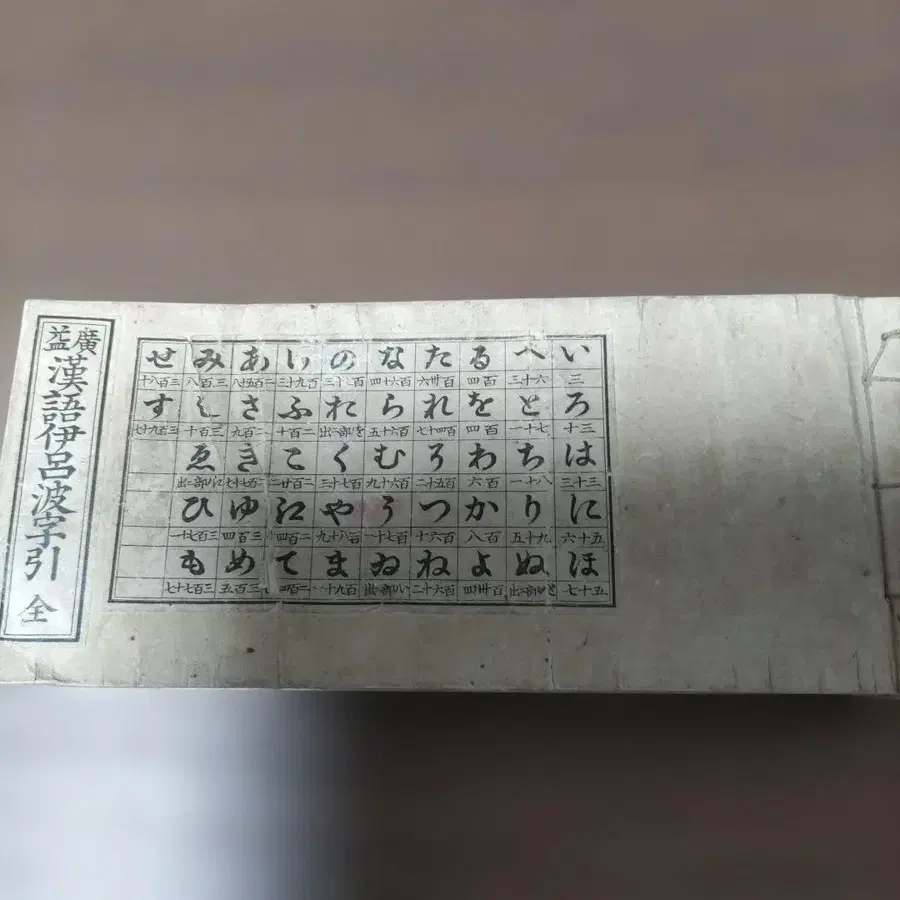 廣益
漢語伊呂波字引 全
い
三
ろ
十三
は
三十三
に
五十六
ほ
五十七
へ
六十三
と
七十一
ち
八十一
り
九十五
ぬ
る
百四
を
百四
わ
百六
か
百八
よ
百卅四
た
百卅六
れ
百四十七
そ
百五十二
つ
百六十
ね
百六十二
な
百六十四
ら
百六十五
む
百六十九
う
百七十一
ゐ
い部ニ出
の
お
を部ニ出
く
百七十三
や
百八十九
ま
百九十一
け
百九十三
ふ
二百十
こ
二百廿二
江
て
あ
二百五十八
さ
き
ゆ
三百四
め
三百五
み
三百八
し
三百十
ゑ
ひ
三百七十一
も
三百七十七
せ
三百八十
す